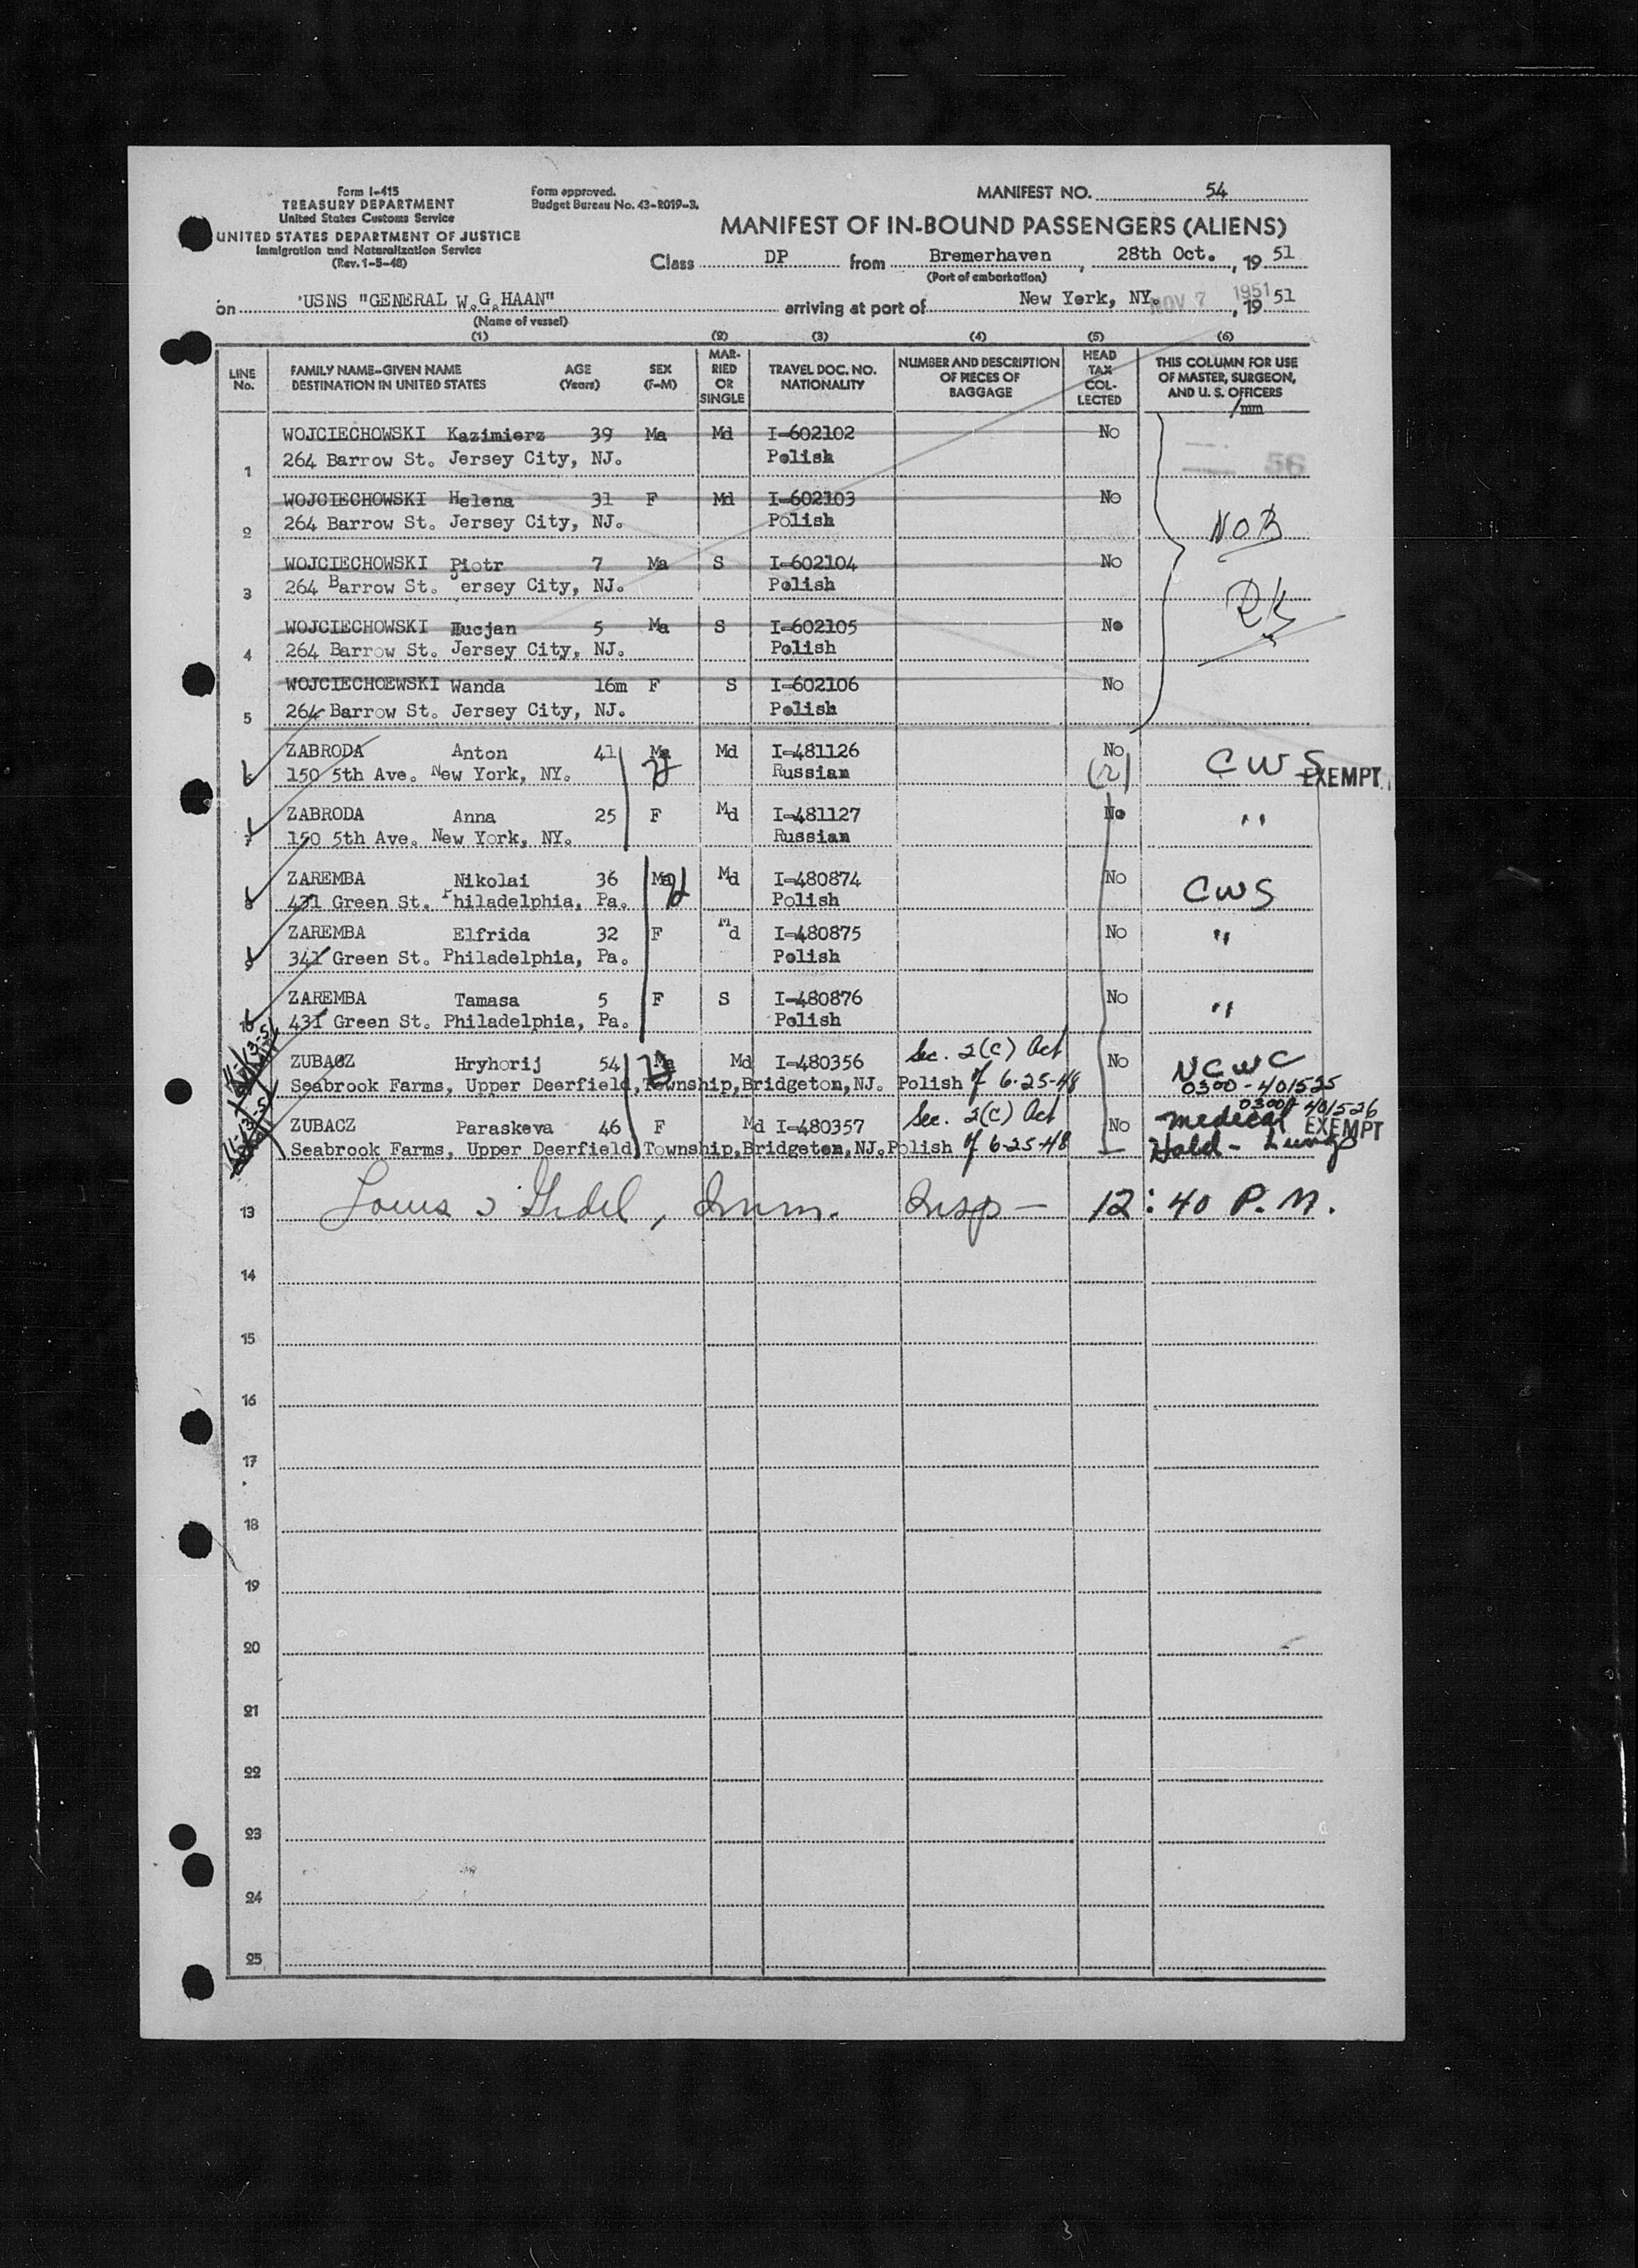 Form I-415
TREASURY DEPARTMENT
United States Customs Service
UNITED STATES DEPARTMENT OF JUSTICE
Immigration and Naturalization Service
(Rev. 1-5-48)
Form approved.
Budget Bureau No. 43-R019-3.
MANIFEST NO. 54
MANIFEST OF IN-BOUND PASSENGERS (ALIENS)
Class DP from Bremerhaven, 28th Oct., 19 51
(Port of embarkation)
on USNS "GENERAL W.G.HAAN" arriving at port of New York, NY. NOV 7 1951, 19 51
(Name of vessel)
(1) (2) (3) (4) (5) (6)
LINE No. FAMILY NAME-GIVEN NAME DESTINATION IN UNITED STATES AGE (Years) SEX (F-M) MARRIED OR SINGLE TRAVEL DOC. NO. NATIONALITY NUMBER AND DESCRIPTION OF PIECES OF BAGGAGE HEAD TAX COLLECTED THIS COLUMN FOR USE OF MASTER, SURGEON, AND U. S. OFFICERS
/mm
WOJCIECHOWSKI Kazimierz 39 Ma Md I-602102 No
1 264 Barrow St. Jersey City, NJ. Polish 56
WOJCIECHOWSKI Helena 31 F Md I-602103 No
2 264 Barrow St. Jersey City, NJ. Polish NOB
WOJCIECHOWSKI Piotr 7 Ma S I-602104 No
3 264 Barrow St. Jersey City, NJ. Polish
WOJCIECHOWSKI Hucjan 5 Ma S I-602105 No
4 264 Barrow St. Jersey City, NJ. Polish
WOJCIECHOEWSKI Wanda 16m F S I-602106 No
5 264 Barrow St. Jersey City, NJ. Polish
ZABRODA Anton 41 Ma Md I-481126 No CWS
6 150 5th Ave. New York, NY. Russian (2) EXEMPT
ZABRODA Anna 25 F Md I-481127 No "
7 150 5th Ave. New York, NY. Russian
ZAREMBA Nikolai 36 Ma Md I-480874 No CWS
8 431 Green St. Philadelphia, Pa. Polish
ZAREMBA Elfrida 32 F Md I-480875 No "
9 341 Green St. Philadelphia, Pa. Polish
ZAREMBA Tamasa 5 F S I-480876 No "
10 431 Green St. Philadelphia, Pa. Polish
ZUBACZ Hryhorij 54 Ma Md I-480356 Sec. 2(c) Act No NCWC
11-13-51 Seabrook Farms, Upper Deerfield, Township, Bridgeton, NJ. Polish of 6-25-48 0300-401525
0300-401526
ZUBACZ Paraskeva 46 F Md I-480357 Sec. 2(c) Act No Medical EXEMPT
11-13-51 Seabrook Farms, Upper Deerfield Township, Bridgeton, NJ. Polish of 6-25-48 Hold - Lungs
13 Louis Imm. Insp — 12:40 P.M.
14
15
16
17
18
19
20
21
22
23
24
25